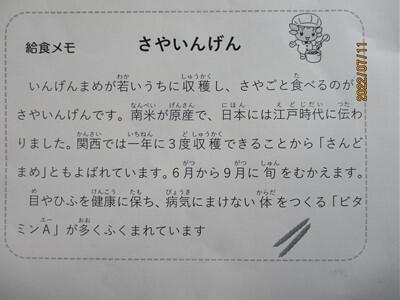 給食メモ
さやいんげん
いんげんまめが若いうちに収穫し、さやごと食べるのが
さやいんげんです。南米が原産で、日本には江戸時代に伝わ
りました。関西では一年に３度収穫できることから「さんど
まめ」ともよばれています。６月から９月に旬をむかえます。
目やひふを健康に保ち、病気にまけない体をつくる「ビタ
ミンＡ」が多くふくまれています
2022/07/11